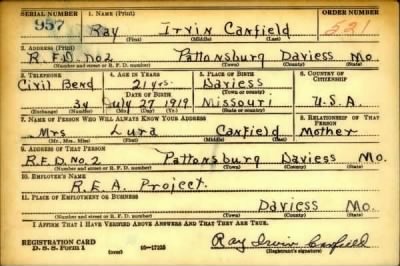 SERIAL NUMBER 1. NAME (Print) ORDER NUMBER
957 Ray Irvin Canfield 521
(First) (Middle) (Last)
2. ADDRESS (Print)
R.F.D. No2 Pattonsburg Daviess Mo.
(Number and street or R. F. D. number) (Town) (County) (State)
3. TELEPHONE 4. AGE IN YEARS 5. PLACE OF BIRTH 6. COUNTRY OF CITIZENSHIP
Civil Bend 21 yrs. Daviess
DATE OF BIRTH (Town or county)
34 July 27 1919 Missouri U.S.A.
(Exchange) (Number) (Mo.) (Day) (Yr.) (State or country)
7. NAME OF PERSON WHO WILL ALWAYS KNOW YOUR ADDRESS 8. RELATIONSHIP OF THAT PERSON
Mrs Lura Canfield Mother
(Mr., Mrs., Miss) (First) (Middle) (Last)
9. ADDRESS OF THAT PERSON
R.F.D. No. 2 Pattonsburg Daviess Mo.
(Number and street or R. F. D. number) (Town) (County) (State)
10. EMPLOYER'S NAME
R.E.A. Project.
11. PLACE OF EMPLOYMENT OR BUSINESS
Daviess Mo.
(Number and street or R. F. D. number) (Town) (County) (State)
I AFFIRM THAT I HAVE VERIFIED ABOVE ANSWERS AND THAT THEY ARE TRUE.
REGISTRATION CARD
D. S. S. Form 1 16—17105 Ray Irvin Canfield
(Registrant's signature)